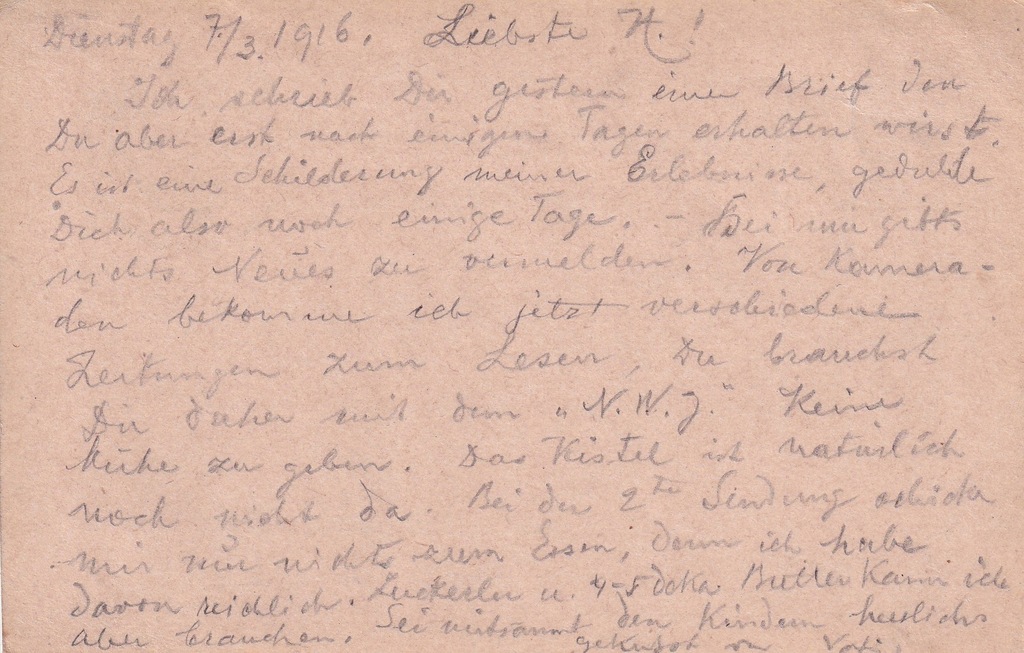 Dienstag 7/3. 1916. Liebste H.!
Ich schrieb Dir gestern einen Brief den
Du aber erst nach einigen Tagen erhalten wirst.
Es ist eine Schilderung meiner Erlebnisse, gedulde
Dich also noch einige Tage. – Bei mir gibts
nichts Neues zu vermelden. Von Kamera-
den bekomme ich jetzt verschiedene
Zeitungen zum Lesen, Du brauchst
Dir daher mit dem „N.W.J." keine
Mühe zu geben. Das Kistel ist natürlich
noch nicht da. Bei der 2ten Sendung schicke
mir nur nichts zum Essen, denn ich habe
davon reichlich. Zuckerln u. 4-5 deka Butter kann ich
aber brauchen. Sei mitsammt den Kindern herzlichst
geküsst von